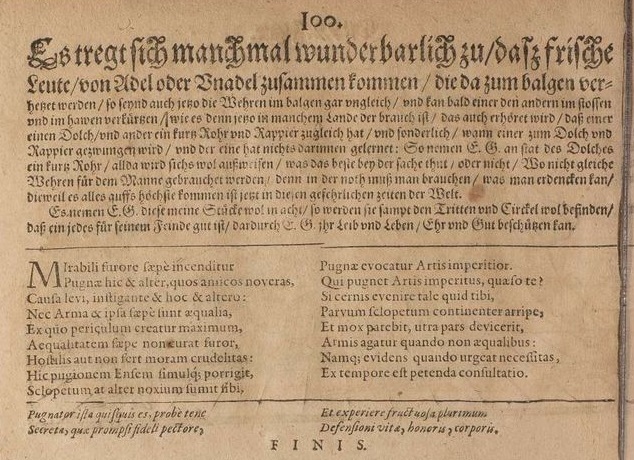 100.
Es tregt sich manchmal wunderbarlich zu/ dasz frische
Leute/ von Adel oder Vnadel zusammen kommen/ die da zum balgen ver-
hetzet werden/ so seynd auch jetzo die Wehren im balgen gar vngleich/ vnd kan bald einer den andern im stossen
vnd im hawen verkürtzen/ wie es denn jetzo in manchem Lande der brauch ist/ das auch erhöret wird/ daß einer
einen Dolch/ vnd ander ein kurtz Rohr vnd Rappier zugleich hat/ vnd sonderlich/ wann einer zum Dolch vnd
Rappier gezwungen wird/ vnd der eine hat nichts darinnen gelernet: So nemen E. G. an stat des Dolches
ein kurtz Rohr/ allda wird sichs wol außweisen/ was das beste bey der sache thut/ oder nicht/ Wo nicht gleiche
Wehren für dem Manne gebrauchet werden/ denn in der noth muß man brauchen/ was man erdencken kan/
dieweil es alles auffs höchste kommen ist jetzt in diesen gefehrlichen zeiten der Welt.
Es nemen E. G. diese meine Stücke wol in acht/ so werden sie sampt den Tritten vnd Circkel wol befinden/
daß ein jedes für seinem Feinde gut ist/ dardurch E. G. jhr Leib vnd Leben/ Ehr vnd Gut beschützen kan.
MIrabili furore sæpè incenditur
Pugnæ hic & alter, quos amicos noveras,
Causa levi, instigante & hoc & altero:
Nec Arma & ipsa sæpè sunt æqualia,
Ex quio periculum creatur maximum,
Aequalitatem sæpe non curat furor,
Hostilis aut non fert moram crudelitas:
Hic pugionem Ensem simulq; porrigit,
Sclopetum at alter noxium sumit sibi,
Pugnæ evocatur Artis imperitior.
Qui pugnet Artis imperitus, quæso te?
Si cernis evenire tale quid tibi,
Parvum sclopetum continenter arripe,
Et mox patebit, utra pars devicerit,
Armis agatur quando non æqualibus:
Namq; evidens quando urgeat necessitas,
Ex tempore est petenda consultatio.
Pugnator ista quisquis es, probè tene
Secreta, quæ prompsi fideli pectore,
Et experiere fructuosa plurimum
Defensioni vitæ, honoris, corporis.
FINIS.